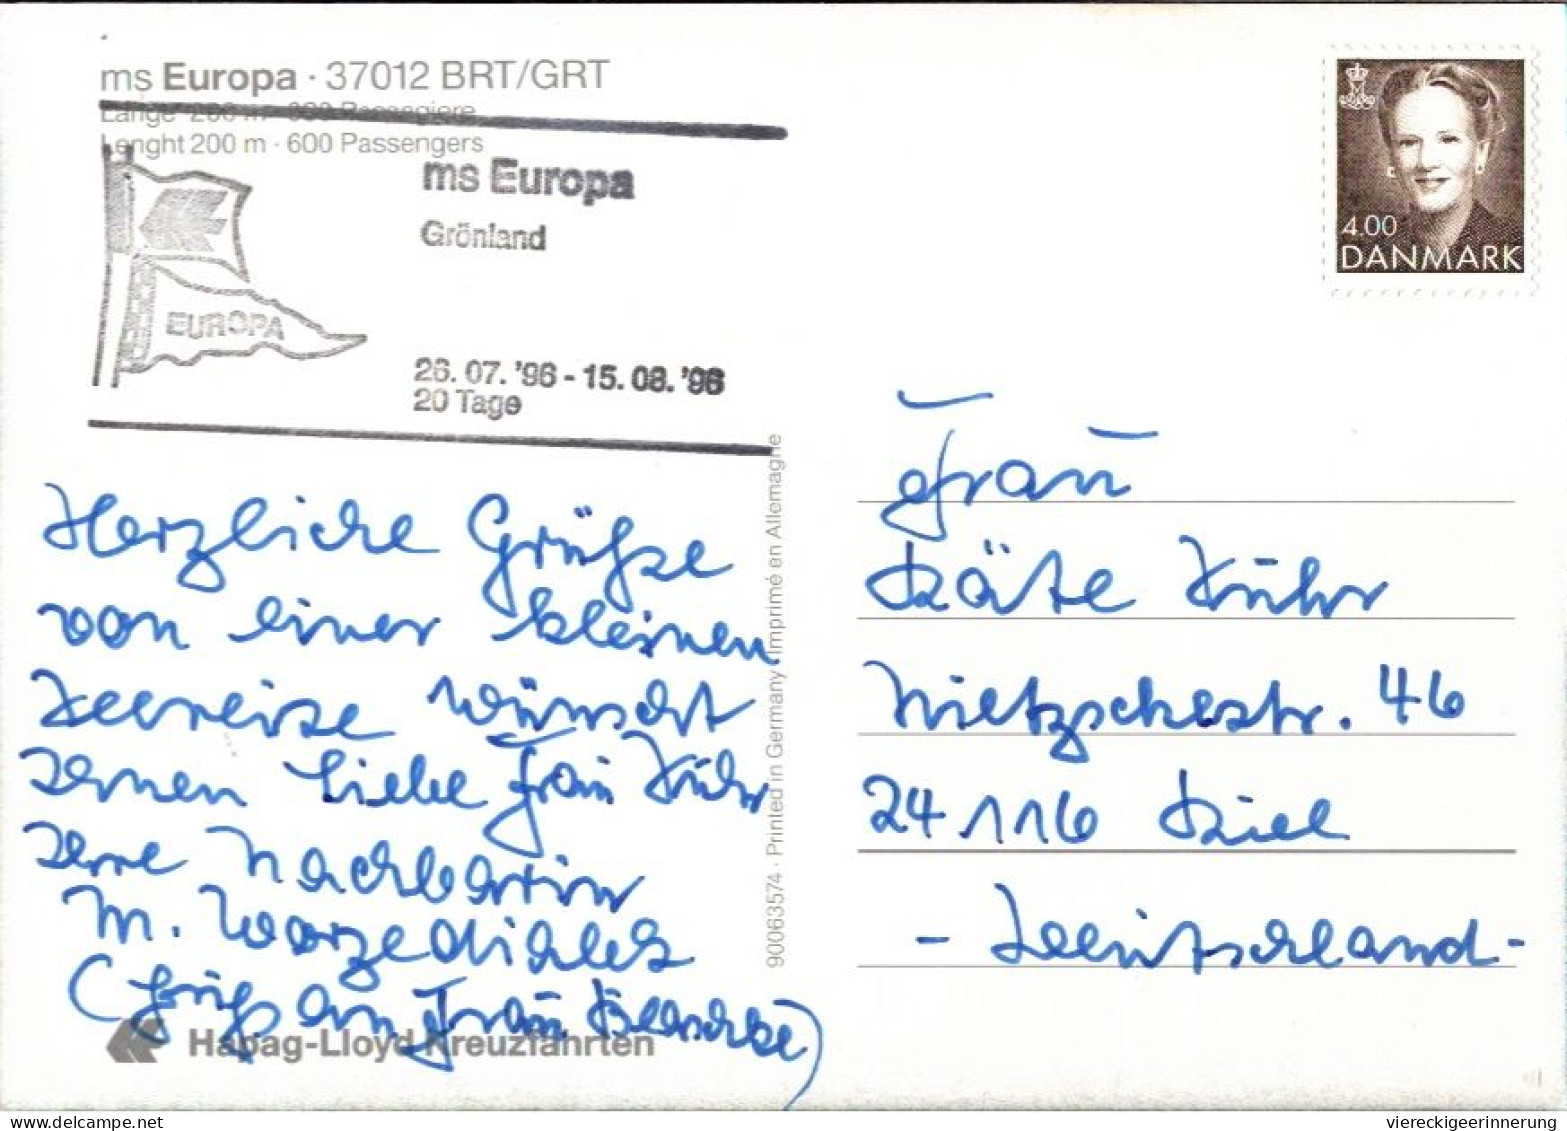 ms Europa · 37012 BRT/GRT
Länge 200 m · 600 Passagiere
Lenght 200 m · 600 Passengers
ms Europa
Grönland
EUROPA
26.07.'96 - 15.08.'96
20 Tage
Herzliche Grüße
von einer kleinen
Seereise wünscht
Ihnen liebe Frau Kühr
Ihre Nachbarin
M.
(Gruß an Frau
Hapag-Lloyd Kreuzfahrten
90063574 · Printed in Germany/Imprimé en Allemagne
4.00
DANMARK
Frau
Käte Kühr
Nietzschestr. 46
24116 Kiel
- Deutschland -
viereckigeerinnerung